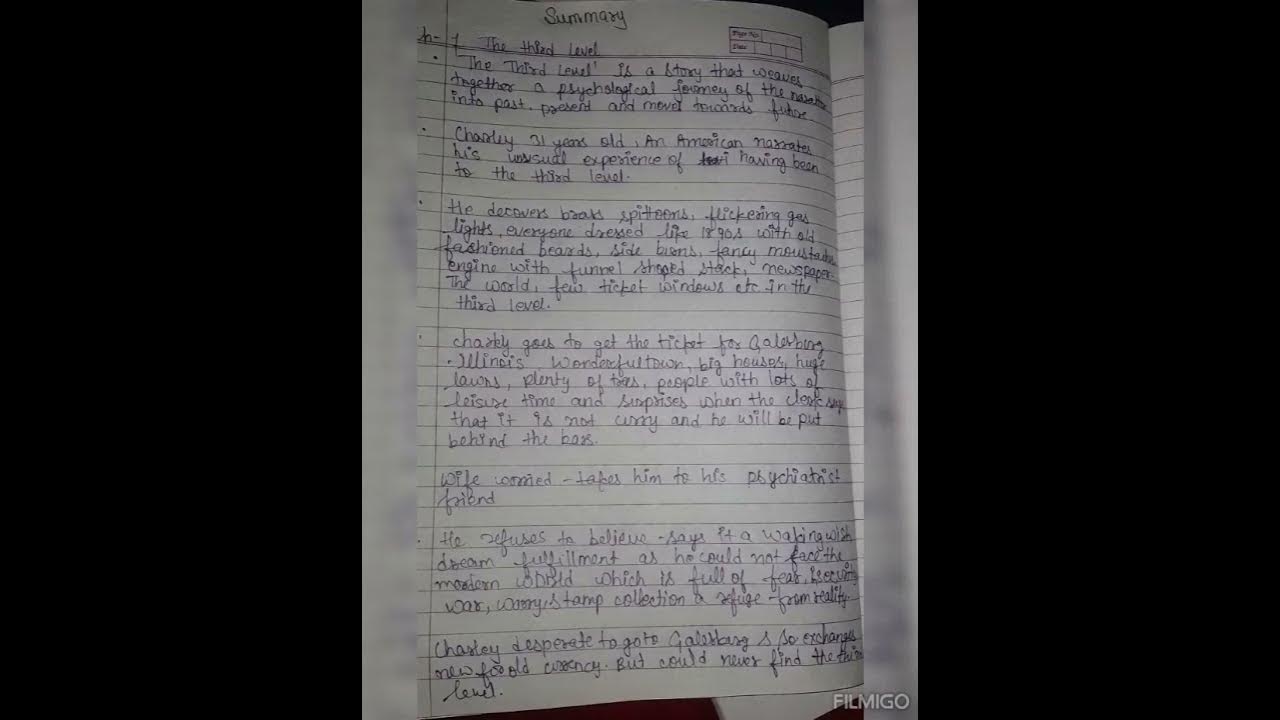 Summary
Page No.
Date
Ch- 1 The third Level
• 'The Third Level' is a story that weaves
together a psychological journey of the narrator
into past, present and moves towards future
• Charley 31 years old, An American narrates
his unusual experience of having been
to the third level.
• He decovers brass spittoons, flickering gas
lights, everyone dressed like 1890s with old
fashioned beards, side burns, fancy moustaches
engine with funnel shaped stack, newspaper-
The world, few ticket windows etc in the
third level.
• charley goes to get the ticket for Galesburg
Illinois wonderful town, big houses, huge
lawns, plenty of trees, people with lots of
leisure time and surprises when the clerk says
that it is not curry and he will be put
behind the bars.
Wife worried - takes him to his psychiatrist
friend
• He refuses to believe - says it a waking wish
dream fulfillment as he could not face the
modern world which is full of fear, insecurity
war, worry, stamp collection a refuge from reality.
Charley desperate to go to Galesburg & so exchanges
new for old currency. But could never find the third
level.
FILMIGO